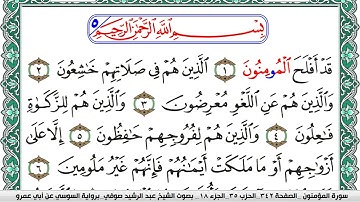 بِسْمِ اللَّهِ الرَّحْمَٰنِ الرَّحِيمِ
قَدْ أَفْلَحَ الْمُومِنُونَ ١ الَّذِينَ هُمْ فِي صَلَاتِهِمْ خَٰشِعُونَ ٢
وَالَّذِينَ هُمْ عَنِ اللَّغْوِ مُعْرِضُونَ ٣ وَالَّذِينَ هُمْ لِلزَّكَوٰةِ
فَٰعِلُونَ ٤ وَالَّذِينَ هُمْ لِفُرُوجِهِمْ حَٰفِظُونَ ٥ إِلَّا عَلَىٰ
أَزْوَٰجِهِمْ أَوْ مَا مَلَكَتْ أَيْمَٰنُهُمْ فَإِنَّهُمْ غَيْرُ مَلُومِينَ ٦
سورة المؤمنون _ الصفحة ٣٤٢_ الحزب ٣٥_ الجزء ١٨ _ بصوت الشيخ عبد الرشيد صوفي_ برواية السوسي عن أبي عمرو